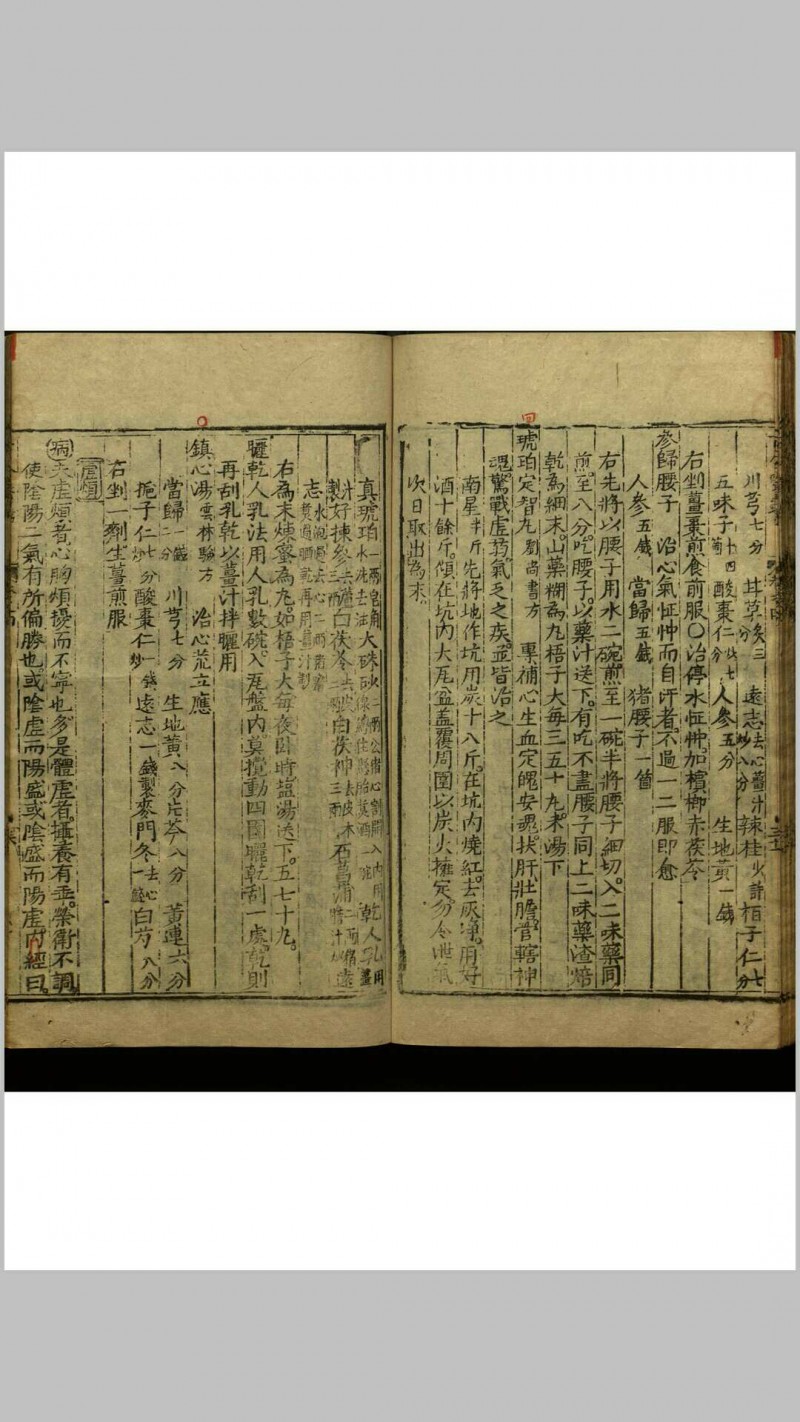 川芎七分 甘草炙三分 遠志去心薑汁炒八分 辣桂少許 栢子仁七分
五味子十四 酸棗仁炒七分 人參五分 生地黃一錢
右剉薑棗煎食前服〇治停水怔忡加檳榔赤茯苓
參歸腰子 治心氣怔忡而自汗者不過一二服即愈
人參五錢 當歸五錢 猪腰子一箇
右先將以腰子用水二碗煎至一碗半將腰子細切入二味藥同
煎至八分吃腰子以藥汁送下有吃不盡腰子同上二味藥渣焙
乾為細末山藥糊為丸梧子大每三五十丸米湯下
琥珀定智丸 劉尚書方 專補心生血定魄安魂扶肝壯膽管轄神
魂驚戰虛弱氣乏之疾並皆治之
南星半斤先將地作坑用炭十八斤在坑內燒紅去灰淨用好
酒十餘斤傾在坑內大瓦盆蓋覆周圍以炭火擁定勿令泄氣
次日取出為末
真琥珀一兩皂角水洗去油 大硃砂二兩公猪心割開入內用線縛住懸胎煮酒二碗 乾人乳用薑汁製
好揀參三兩去蘆 白茯苓去皮三兩 白茯神去皮木三兩 石菖蒲二兩猪膽汁炒 遠
志
右為末煉蜜為丸如梧子大每夜臥時塩湯送下五七十丸
曬乾人乳法用人乳數碗入瓦盤內莫攪動四圍曬乾刮一處乾則
再刮乳乾以薑汁拌曬用
鎮心湯雲林驗方 治心荒立應
當歸一錢二分 川芎七分 生地黃八分 片芩八分 黃連六分
梔子仁炒七分 酸棗仁炒一錢 遠志一錢製 麥門冬去心一錢 白芍八分
右剉一劑生薑煎服
虛煩
病夫虛煩者心胸煩擾而不寧也多是體虛者攝養有乖榮衛不調
使陰陽二氣有所偏勝也或陰虛而陽盛或陰盛而陽虛內經曰